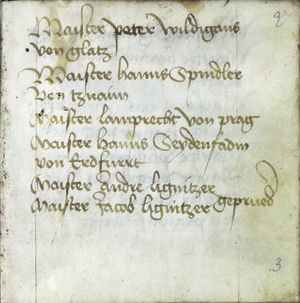 2
Maister peter wildigans
von glatz
Maister hanns Spindler
von tznaim
Maister lamprecht von prag
Maister hanns Seydenfadm
von Erdfurt
Maister Andre lignitzer
Maister Jacob lignitzer geprued
3